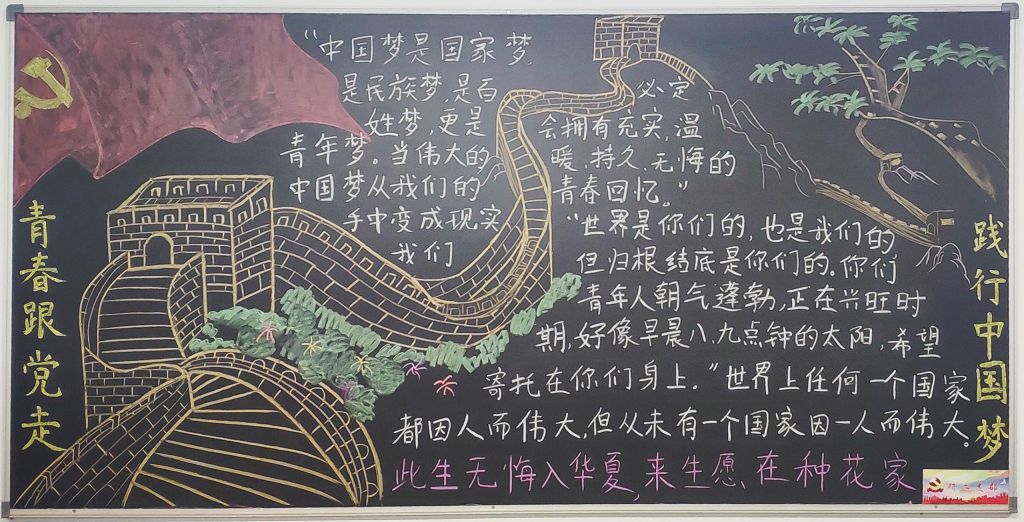 青春跟党走
"中国梦是国家梦,
是民族梦,是百
姓梦,更是
青年梦。当伟大的
中国梦从我们的
手中变成现实
我们
必定
会拥有充实,温
暖,持久,无悔的
青春回忆。"
"世界是你们的,也是我们的
但归根结底是你们的。你们
青年人朝气蓬勃,正在兴旺时
期,好像早晨八九点钟的太阳,希望
寄托在你们身上。"世界上任何一个国家
都因人而伟大,但从未有一个国家因一人而伟大。
此生无悔入华夏,来生愿在种花家
践行中国梦